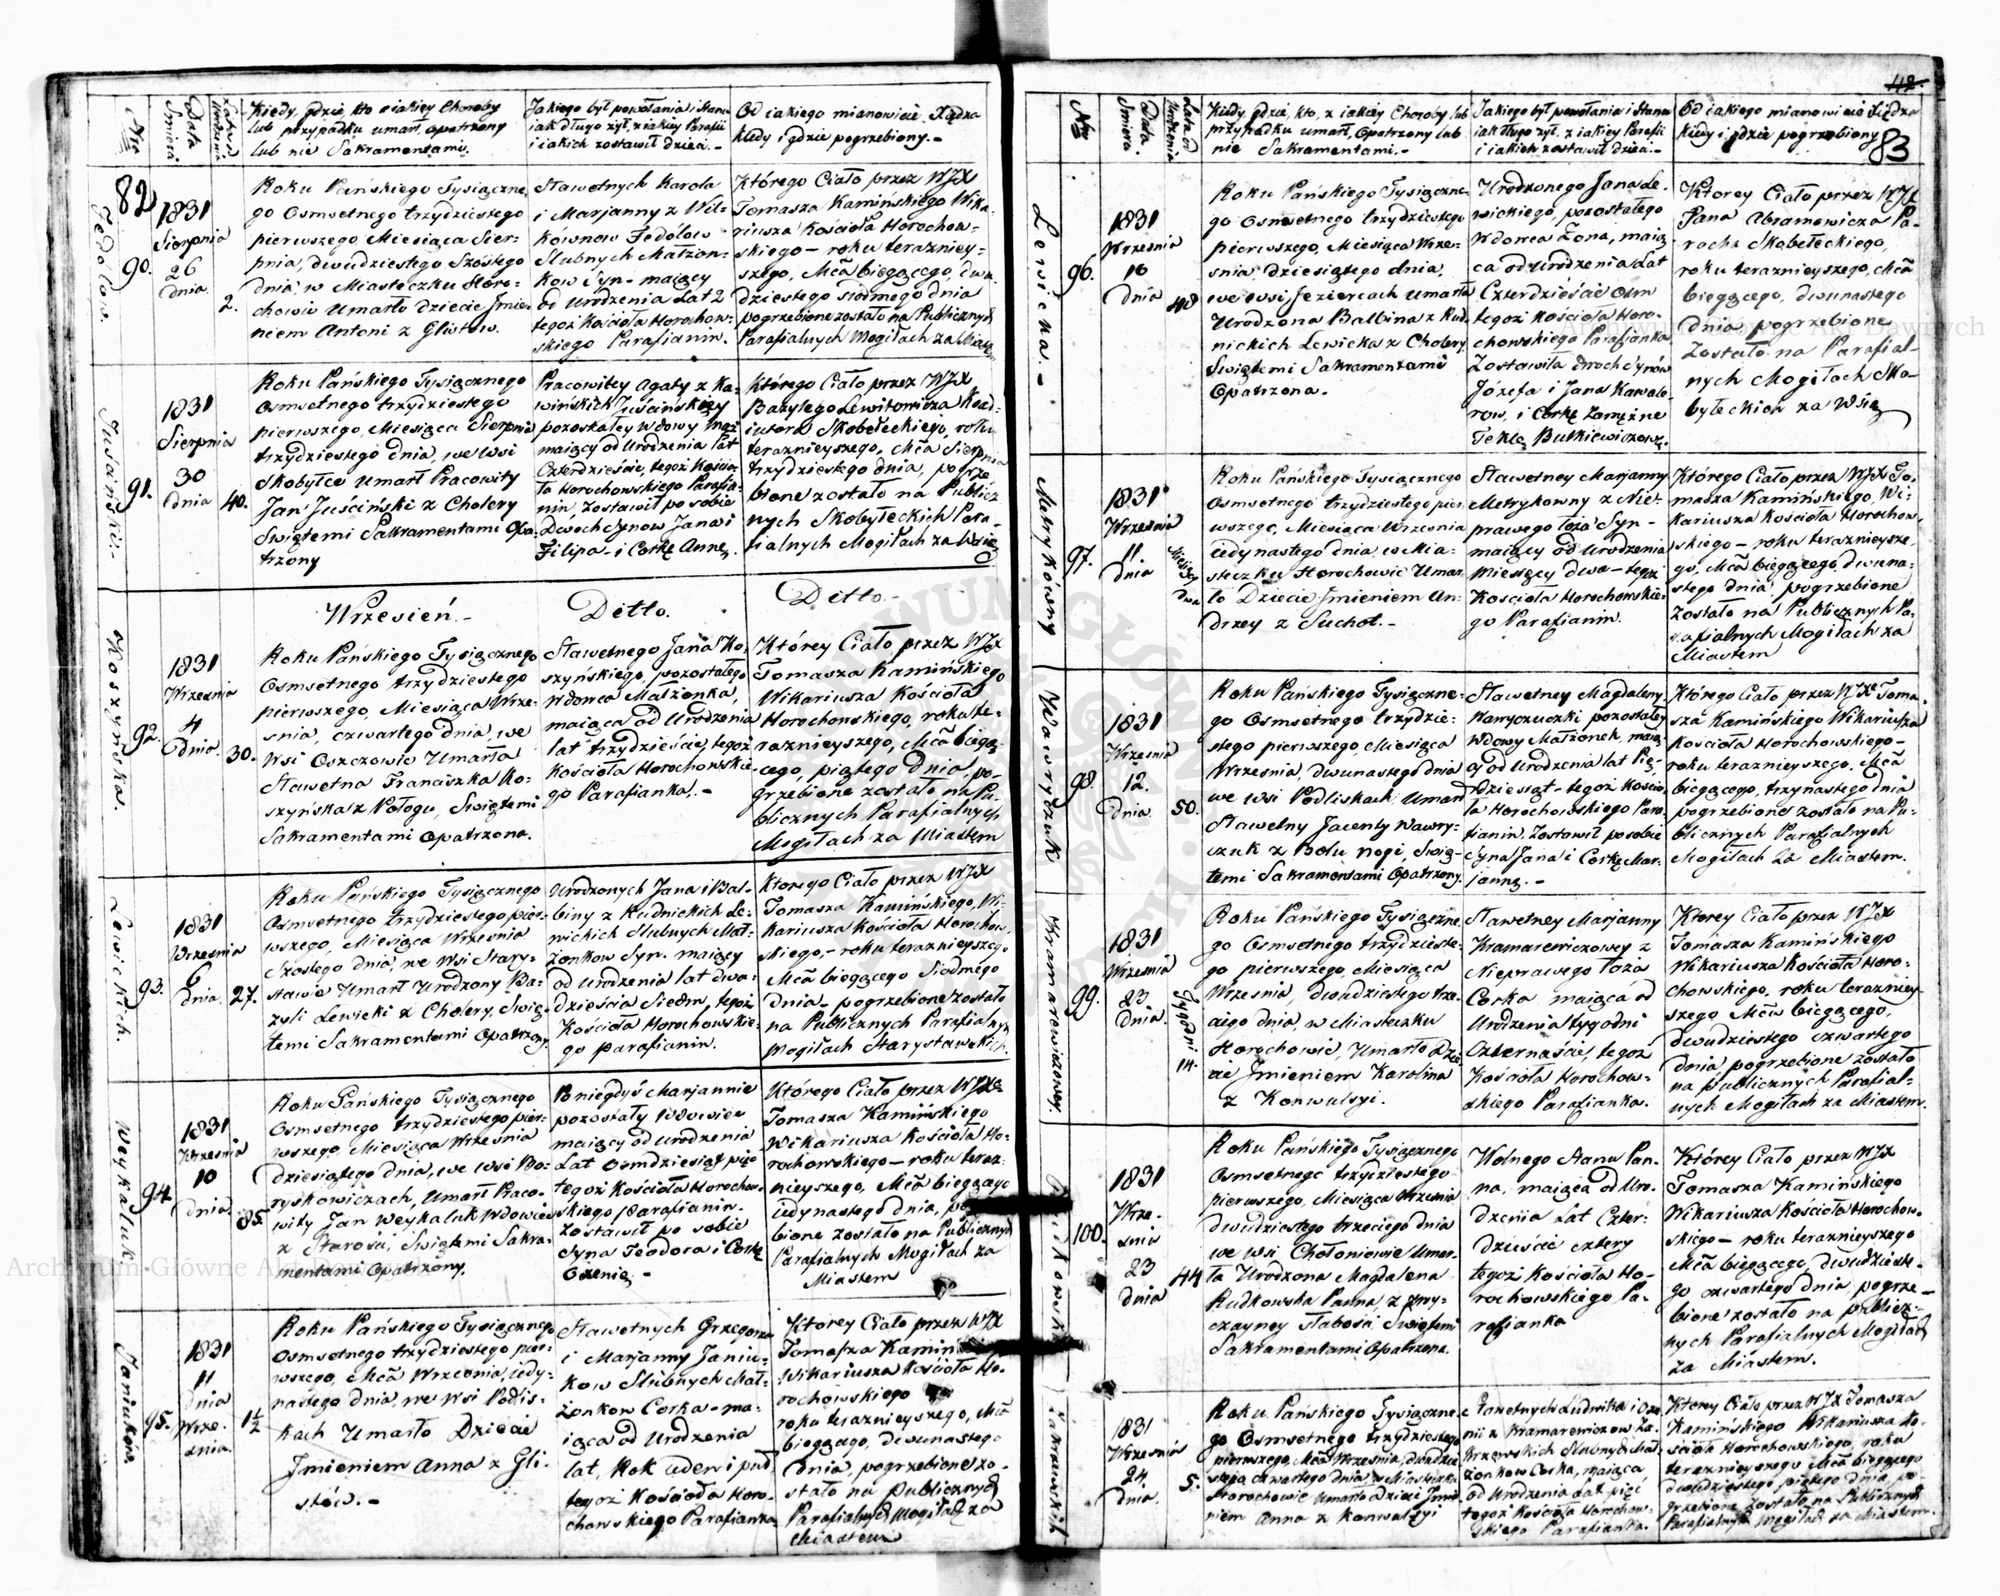 Nro
Data Śmierci
Lata od Urodzenia
Kiedy, gdzie, kto z iakiey Choroby
lub przypadku umarł, opatrzony
lub nie Sakramentami.
Jakiego był powołania i Stanu
iak długo żył, z iakiey Parafii
i iakich zostawił dzieci.-
Od iakiego mianowicie Xiędza
kiedy i gdzie pogrzebiony.-
82
90.
Fedolow.
1831
Sierpnia
26
dnia
2.
Roku Pańskiego Tysiączne-
go Osmsetnego trzydziestego
pierwszego, Miesiąca Sier-
pnia, dwudziestego Szostego
dnia, w Miasteczku Horo-
chowie Umarło dziecie Jmie-
niem Antoni z Glistow.
Sławetnych Karola
i Marjanny z Wil-
kównow Fedolow
Slubnych Małżon-
kow Syn- maiący
od Urodzenia Lat 2
tegoż Kościoła Horochow-
skiego Parafianin.
Którego Ciało przez WJX
Tomasza Kamińskiego Wika-
riusza Kościoła Horochow-
skiego- roku terazniey-
szego, Mca biegącego, dwu-
dziestego siodmego dnia
pogrzebione zostało na Publicznych
Parafialnych Mogiłach za Miastem
91.
Juściński.-
1831
Sierpnia
30
dnia
40.
Roku Pańskiego Tysiącznego
Osmsetnego trzydziestego
pierwszego, Miesiąca Sierpnia
trzydziestego dnia, we Wsi
Skobyłce umarł Pracowity
Jan Juściński z Cholery
Swiętemi Sakramentami Opa-
trzony
Pracowitey Agaty z Ka-
wińskich Juścińskiey
pozostałey wdowy mąż
maiący od Urodzenia lat
Czterdzieście, tegoż Koscio-
ła Horochowskiego Parafia-
nin. Zostawił po sobie
Dwoch Synow Jana i
Filipa- i Corkę Annę.
Którego Ciało przez WJX
Bazylego Lewitowicza Koad-
iutora Skobełeckiego, roku
teraznieyszego, Mca Sierpnia
trzydziestego dnia, pogrze-
bione zostało na Publicz-
nych Skobyłeckich Para-
fialnych Mogiłach za Wsią
Wrzesień.-
Ditto.
Ditto.-
92.
Koszyńska.
1831
Wrzesnia
4
Dnia.
30.
Roku Pańskiego Tysiącznego
Osmsetnego trzydziestego
pierwszego, Miesiąca Wrze-
snia, czwartego dnia, we
Wsi Oszczowie Umarła
Sławetna Franciszka Ko-
szyńska z Połogu, Swiętemi
Sakramentami Opatrzona.
Sławetnego Jana Ko-
szyńskiego, pozostałego
Wdowca Małżonka,
maiąca od Urodzenia
lat trzydzieście, tegoż
Kościoła Horochowskie-
go Parafianka.-
Którey Ciało przez WJX
Tomasza Kamińskiego
Wikariusza Kościoła
Horochowskiego, roku te-
raznieyszego, Mca biegą-
cego, piątego Dnia, po-
grzebione zostało na Pu-
blicznych Parafialnych
Mogiłach za Miastem
93.
Lewickich.
1831
Wrzesnia
6
dnia.
27.
Roku Pańskiego Tysiącznego
Osmsetnego trzydziestego pier-
wszego, Miesiąca Wrzesnia
Szostego dnia, we Wsi Stary-
stawie Umarł Urodzony Ba-
zyli Lewicki z Cholery, Swię-
temi Sakramentami Opatrzony
Urodzonych Jana i Bal-
biny z Rudnickich Le-
wickich Slubnych Mał-
żonkow Syn. maiący
od Urodzenia lat dwa-
dzieścia Siedm, tegoż
Kościoła Horochowskie-
go parafianin.
Ktorego Ciało przez WJX
Tomasza Kamińskiego, Wi-
kariusza Kościoła Horochow-
skiego,- roku teraznieyszego
Mca biegącego Siodmego
Dnia- pogrzebione zostało
na Publicznych Parafialnych
Mogiłach Starystawskich.
94.
Weykaluk.
1831
Wrzesnia
10
dnia.
85.
Roku Pańskiego Tysiącznego
Osmsetnego trzydziestego pier-
wszego, Miesiąca Wrzesnia
dziesiątego dnia, we Wsi Bo-
ryskowiczach, Umarł Praco-
wity Jan Weykaluk Wdowiec
z Starości, Swiętemi Sakra-
mentami Opatrzony.
Po niegdyś Marjannie
pozostały Wdowiec
maiący od Urodzenia
Lat Osmdziesiąt pięć
tegoż Kościoła Horochow-
skiego parafianin.
Zostawił po sobie
Syna Teodora i Corkę
Oxenię.-
Którego Ciało przez WJX
Tomasza Kamińskiego
Wikariusza Kościoła Ho-
rochowskiego- roku teraz-
nieyszego, Mca biegącego
iedynastego dnia, pogrze-
bione zostało na Publicznych
Parafialnych Mogiłach za
Miastem
95.
Janiukow.
1831
11
dnia
Wrze-
snia.
1½
Roku Pańskiego Tysiącznego
Osmsetnego trzydziestego pier-
wszego, Mca Wrzesnia, iedy-
nastego dnia, we Wsi Podlis-
kach Umarło Dziecie
Jmieniem Anna z Gli-
stow.-
Sławetnych Grzegorza
i Marjanny Janiu-
kow Slubnych Mał-
żonkow Corka- ma-
iąca od Urodzenia
lat, Rok ieden i puł
tegoż Kościoła Horo-
chowskiego Parafianka
Ktorey Ciało przez WJX
Tomasza Kamin
Wikariusza Kościoła Ho-
rochowskiego
roku teraznieyszego, Mca
biegącego, dwunastego
Dnia, pogrzebione zo-
stało na publicznych
Parafialnych Mogiłach za
Miastem
42
83
Nro
Data Śmierci.
Lata od Urodzenia
Kiedy, gdzie, kto, z iakiey Choroby lub
przypadku umarł, Opatrzony lub
nie Sakramentami.-
Jakiego był powołania i Stanu
iak długo żył, z iakiey Parafii
i iakich zostawił dzieci.-
Od iakiego mianowicie Xiędza
kiedy i gdzie pogrzebiony
96.
Lewicka.-
1831
Wrzesnia
10
dnia
48
Roku Pańskiego Tysiączne-
go Osmsetnego trzydziestego
pierwszego, Miesiąca Wrze-
snia dziesiątego dnia,
we wsi Jeziercach Umarła
Urodzona Balbina z Rud-
nickich Lewicka z Cholery
Swiętemi Sakramentami
Opatrzona.
Urodzonego Jana Le-
wickiego, pozostałego
Wdowca Żona, maią-
ca od Urodzenia Lat
Czterdzieście Osm
tegoż Kościoła Horo-
chowskiego Parafianka
Zostawiła dwoch Synów
Józefa i Jana Kawale-
row, i Corkę Zamężne
Teklę Butkiewiczową.
Ktorey Ciało przez WJX
Jana Abramowicza Pa-
rocha Skobełeckiego,
roku teraznieyszego, Mca
biegącego, dwunastego
dnia pogrzebione
Zostało na Parafial-
nych Mogiłach Sko-
byłeckich za Wsią
97.
Metrykówny
1831
Wrzesnia
11
dnia
Miesięcy
Dwa
Roku Pańskiego Tysiącznego
Osmsetnego trzydziestego pier-
wszego, Miesiąca Wrzesnia
iedynastego dnia, w Mia-
steczku Horochowie Umar-
ło Dziecie Jmieniem An-
drzey z Suchot.-
Sławetney Marjanny
Metrykowny z Nie-
prawego łoża Syn-
maiący od Urodzenia
Miesięcy dwa- tegoż
Kościoła Horochowskie-
go Parafianin.
Którego Ciało przez WJX To-
masza Kamińskiego, Wi-
kariusza Kościoła Horochow-
skiego- roku teraznieysze-
go, Mca biegącego, dwuna-
stego dnia, pogrzebione
Zostało na Publicznych Pa-
rafialnych Mogiłach za
Miastem
98.
Wawryszuk
1831
Wrzesnia
12.
dnia
50.
Roku Pańskiego Tysiączne-
go Osmsetnego trzydzie-
stego pierwszego, Miesiąca
Wrzesnia, dwunastego dnia
we wsi Podliskach Umarł
Sławetny Jacenty Wawry-
szuk z Bolu nogi, Swię-
temi Sakramentami Opatrzony.
Sławetney Magdaleny
pozostałey
Wdowy Małżonek, maią-
cy od Urodzenia lat Pię-
dziesiąt- tegoż Koscio-
ła Horochowskiego Para-
fianin. Zostawił po sobie
Syna Jana i Corkę Mar-
jannę.-
Którego Ciało przez WJX Toma-
sza Kamińskiego Wikariusza
Kościoła Horochowskiego-
roku teraznieyszego, Mca
biegącego, trzynastego dnia
pogrzebione zostało na Pu-
blicznych Parafialnych
Mogiłach za Miastem.
99.
Kramarewiczowey.
1831
Wrzesnia
23.
Dnia.
Tygodni
14.
Roku Pańskiego Tysiączne-
go Osmsetnego trzydzieste-
go pierwszego, Miesiąca
Wrzesnia, dwudziestego trze-
ciego dnia, w Miasteczku
Horochowie, Umarło Dzie-
cie Jmieniem Karolina
z Konwulsyi.
Sławetney Marjanny
Kramarewiczowey z
Nieprawego łoża
Corka maiąca od
Urodzenia tygodni
Czternaście, tegoż
Kościoła Horochow-
skiego Parafianka.
Ktorey Ciało przez WJX
Tomasza Kamińskiego
Wikariusza Kościoła Horo-
chowskiego, roku terazniey-
szego Mca biegącego,
dwudziestego czwartego
dnia pogrzebione zostało
na publicznych Parafial-
nych Mogiłach za Miastem.
100.
1831
Wrze-
snia
23
dnia
44
Roku Pańskiego Tysiącznego
Osmsetnego trzydziestego
pierwszego, Miesiąca Wrzesnia
dwudziestego trzeciego dnia
we wsi Chołoniowie Umar-
ła Urodzona Magdalena
Rudkowska Panna, z zwy-
czayney słabości Swiętemi
Sakramentami Opatrzona.
Wolnego Stanu Pan-
na, maiąca od Uro-
dzenia Lat Czter-
dzieście cztery
tegoż Kościoła Ho-
rochowskiego Pa-
rafianka
Którey Ciało przez WJX
Tomasza Kamińskiego
Wikariusza Kościoła Horochow-
skiego- roku teraznieyszego
Mca biegącego, dwudzieste-
go czwartego dnia, pogrze-
bione zostało na publicz-
nych Parafialnych Mogiłach
za Miastem.
Zakrzewskich
1831
Wrzesnia
24
dnia.
5.
Roku Pańskiego Tysiączne-
go Osmsetnego trzydziestego
pierwszego, Mca Wrzesnia, dwudzie-
stego czwartego dnia, w Miasteczku
Horochowie Umarło dziecie Jmie-
niem Anna z Konwulsyi
Sławetnych Ludwika i
z Kramarewiczow Za-
krzewskich Slubnych Mał-
żonkow Corka, maiąca
od Urodzenia Lat pięć
tegoż Kościoła Horochow-
skiego Parafianka.
Ktorey Ciało przez WJX Tomasza
Kamińskiego Wikariusza Ko-
scioła Horochowskiego, roku
teraznieyszego Mca biegącego
dwudziestego piątego dnia, po-
grzebione zostało na Publicznych
Parafialnych Mogiłach za Miastem.
Archiwum Główne Akt Dawnych